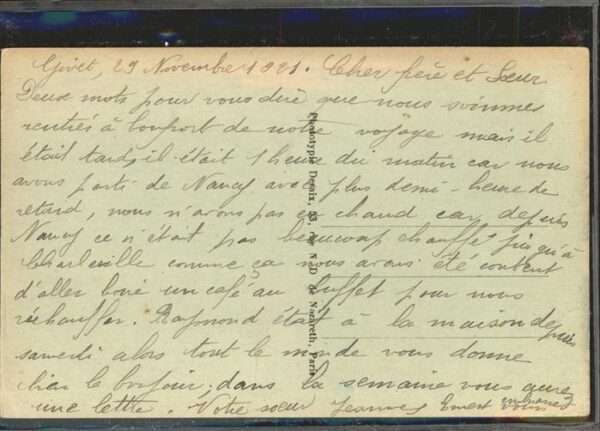 Givet, 29 Novembre 1921. Cher frère et Sœur
Deux mots pour vous dire que nous sommes
rentrés à bon port de notre voyage mais il
était tard, il était 1 heure du matin car nous
avons parti de Nancy avec plus demi-heure de
retard, nous n'avons pas eu chaud car depuis
Nancy ce n'était pas beaucoup chauffé jusqu'à
Charleville comme ça nous avons été content
d'aller boire un café au buffet pour nous
réchauffer. Raymond était à la maison depuis
samedi alors tout le monde vous donne
bien le bonjour, dans la semaine vous aurez
une lettre. Votre sœur Jeanne Ernest
Phototypie Desaix, 53, rue N.-D. de Nazareth, Paris